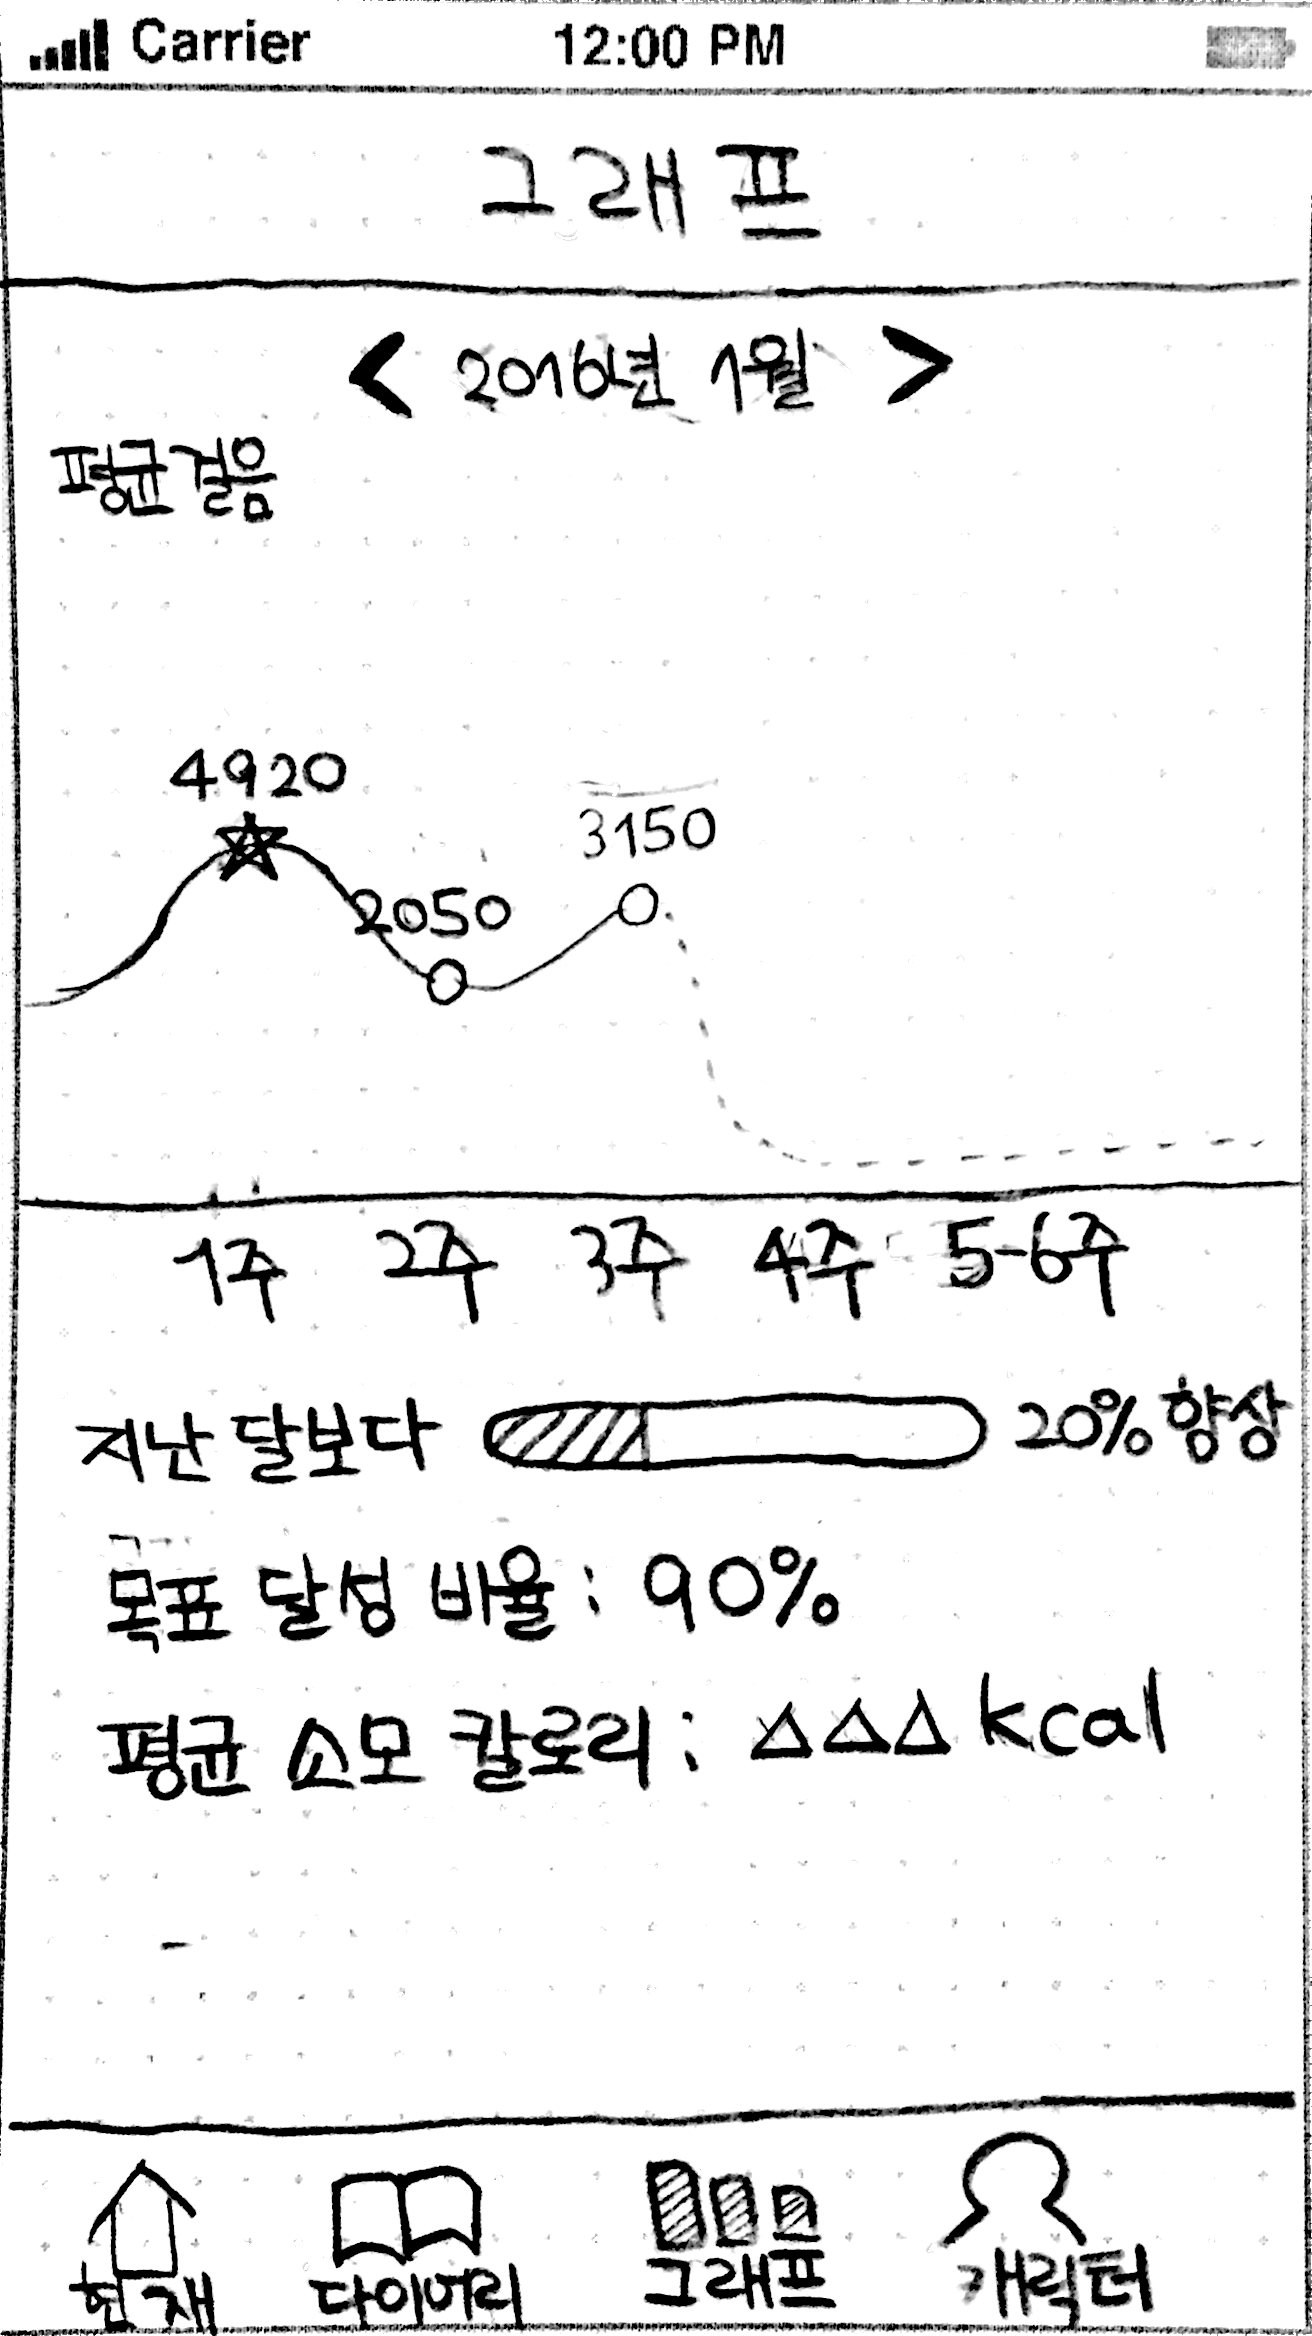 Carrier 12:00 PM
그래프
< 2016년 1월 >
평균걸음
4920
3150
2050
1주 2주 3주 4주 5-6주
지난 달보다 20% 향상
목표 달성 비율 : 90%
평균 소모 칼로리 : △△△ kcal
현재 다이어리 그래프 캐릭터